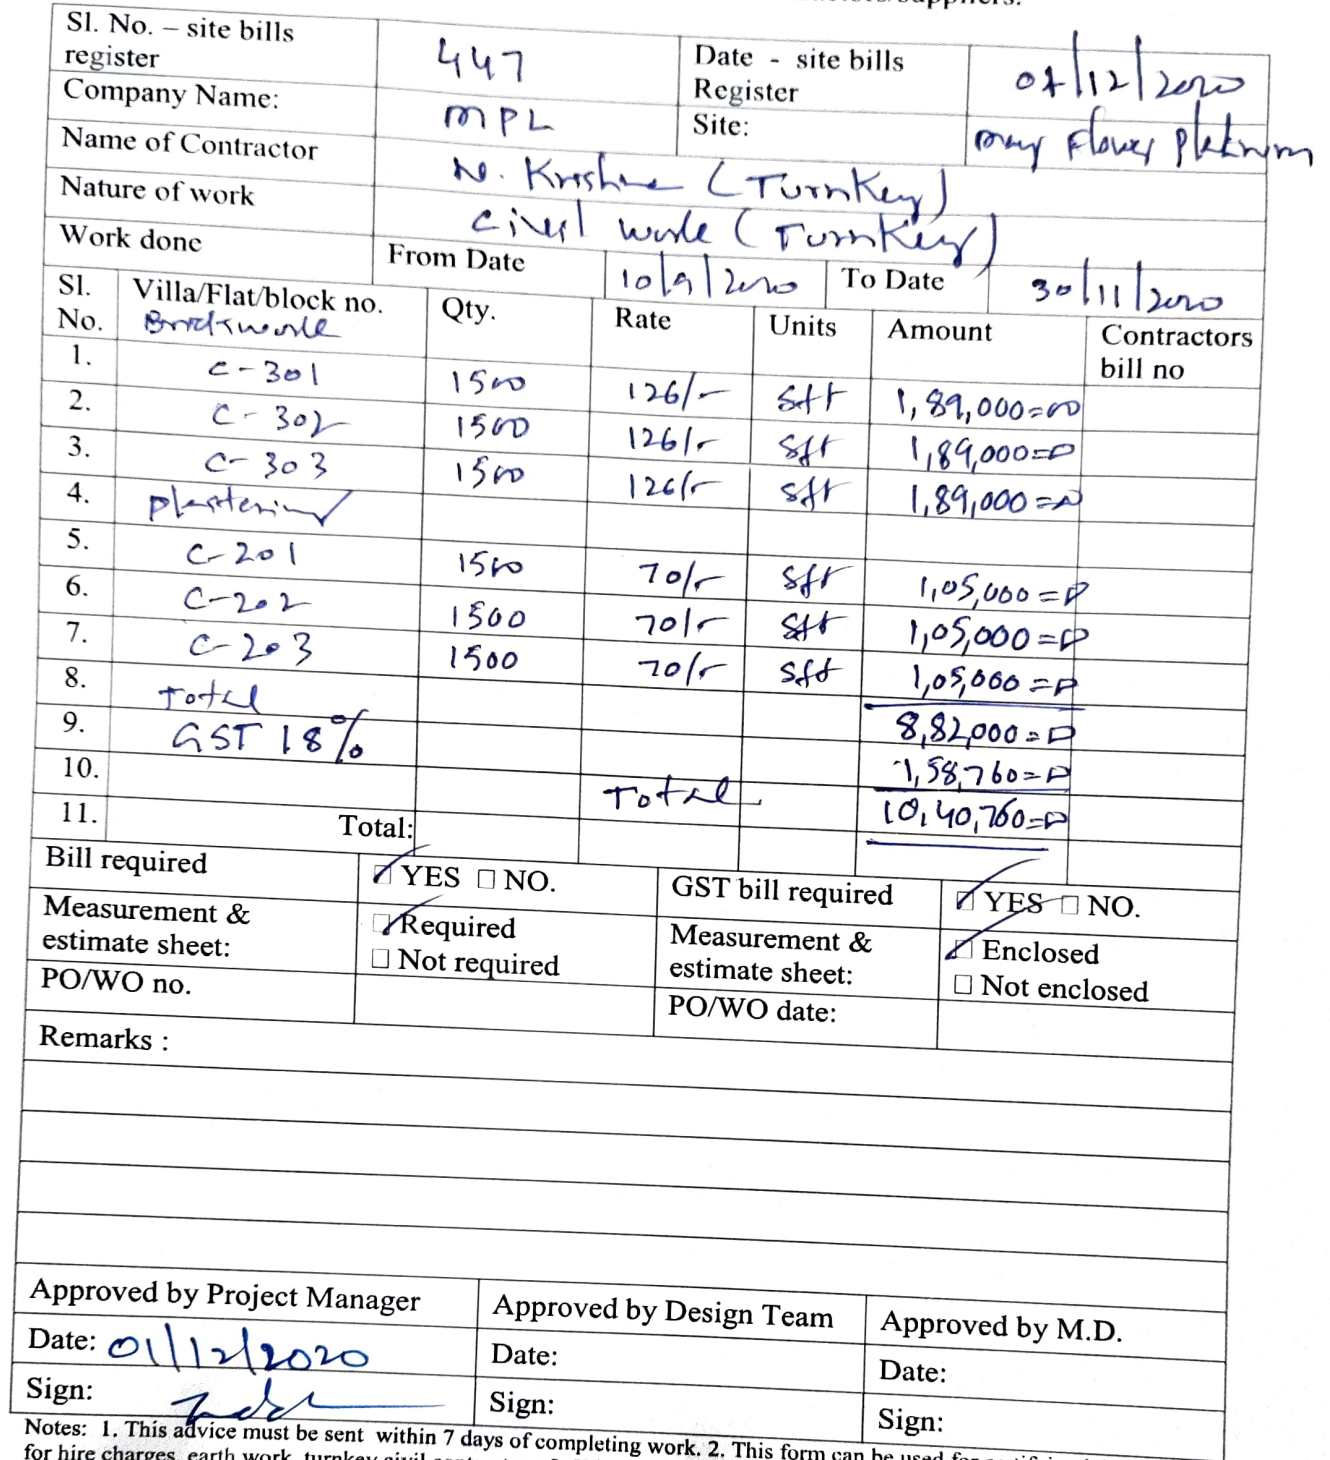 Sl. No. – site bills register 447 Date - site bills Register 01/12/2020
Company Name: MPL Site: may Flower Platinum
Name of Contractor N. Krishna (Turnkey)
Nature of work Civil work (Turnkey)
Work done From Date 10/9/2020 To Date 30/11/2020
Sl. No. Villa/Flat/block no. Qty. Rate Units Amount Contractors bill no
Brickwork
1. C-301 1500 126/- sft 1,89,000=00
2. C-302 1500 126/- sft 1,89,000=00
3. C-303 1500 126/- sft 1,89,000=00
4. plastering
5. C-201 1500 70/- sft 1,05,000=00
6. C-202 1500 70/- sft 1,05,000=00
7. C-203 1500 70/- sft 1,05,000=00
8. Total 8,82,000=00
9. GST 18% 1,58,760=00
10. Total 10,40,760=00
11. Total:
Bill required YES NO. GST bill required YES NO.
Measurement & estimate sheet: Required Not required Measurement & estimate sheet: Enclosed Not enclosed
PO/WO no. PO/WO date:
Remarks :
Approved by Project Manager Approved by Design Team Approved by M.D.
Date: 01/12/2020 Date: Date:
Sign: Sign: Sign:
Notes: 1. This advice must be sent within 7 days of completing work. 2. This form can be used for
for hire charges, earth work, turnkey civil